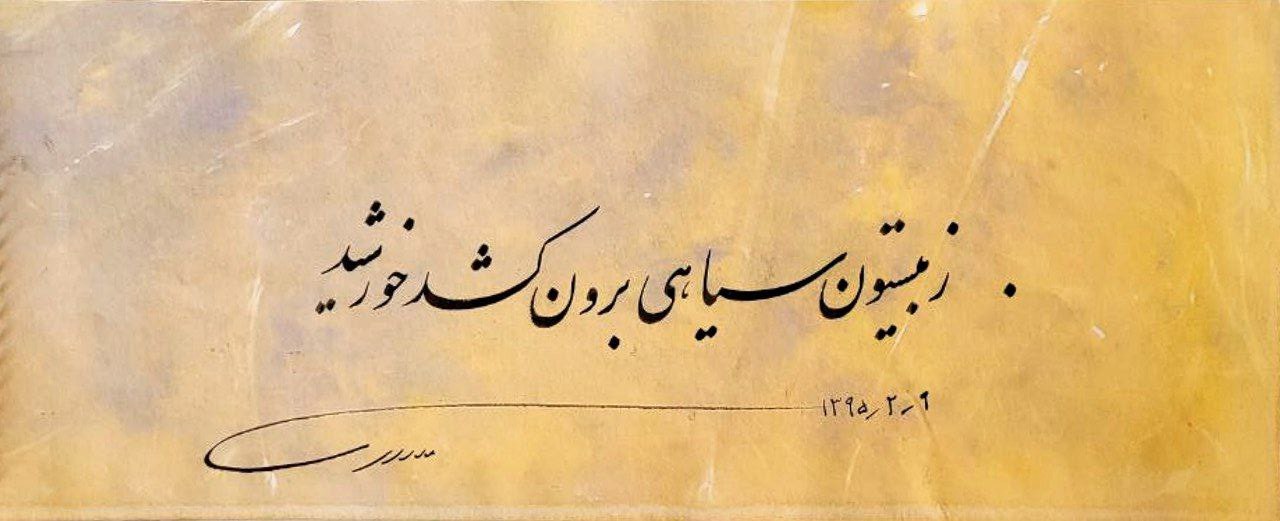 ز بیستون سیاهی برون کشد خورشید
۱۳۹۵/۲/۹